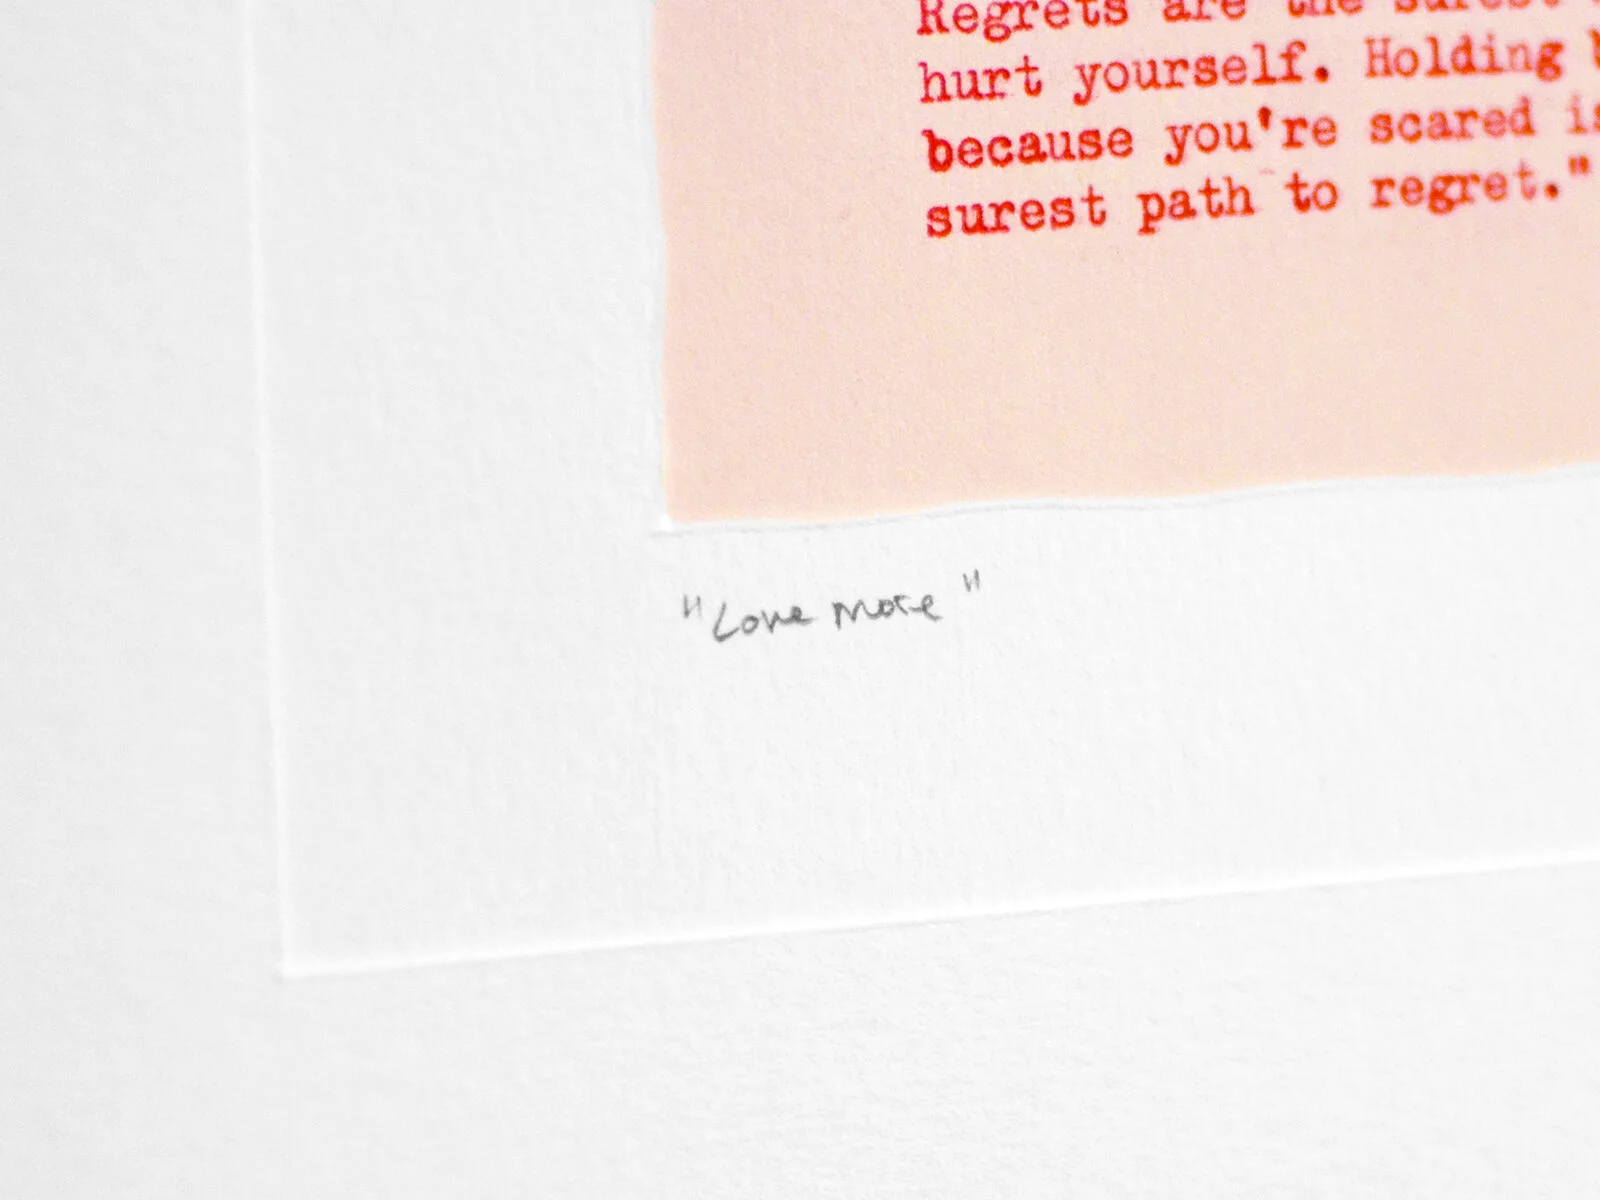 Regrets are the surest
hurt yourself. Holding
because you're scared is
surest path to regret."
"Love more"